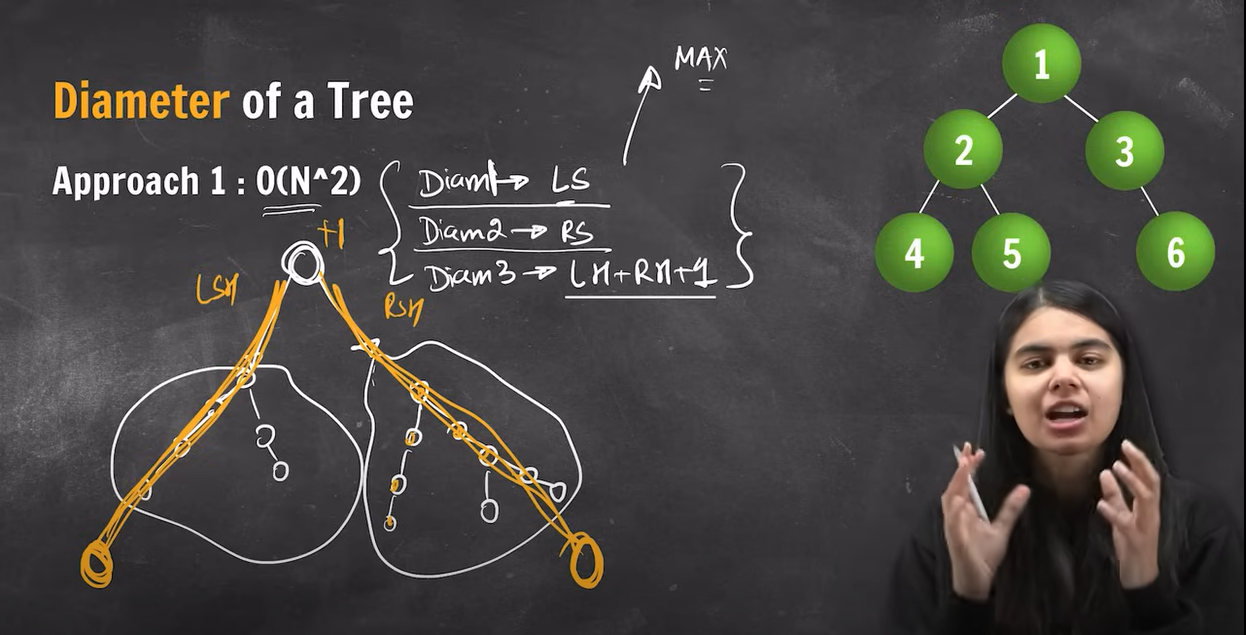 MAX
Diameter of a Tree
Approach 1 : O(N^2)
Diam1→ LS
Diam2→ RS
Diam3→ LH+RH+1
+1
LSH
RSH
1
2
3
4
5
6